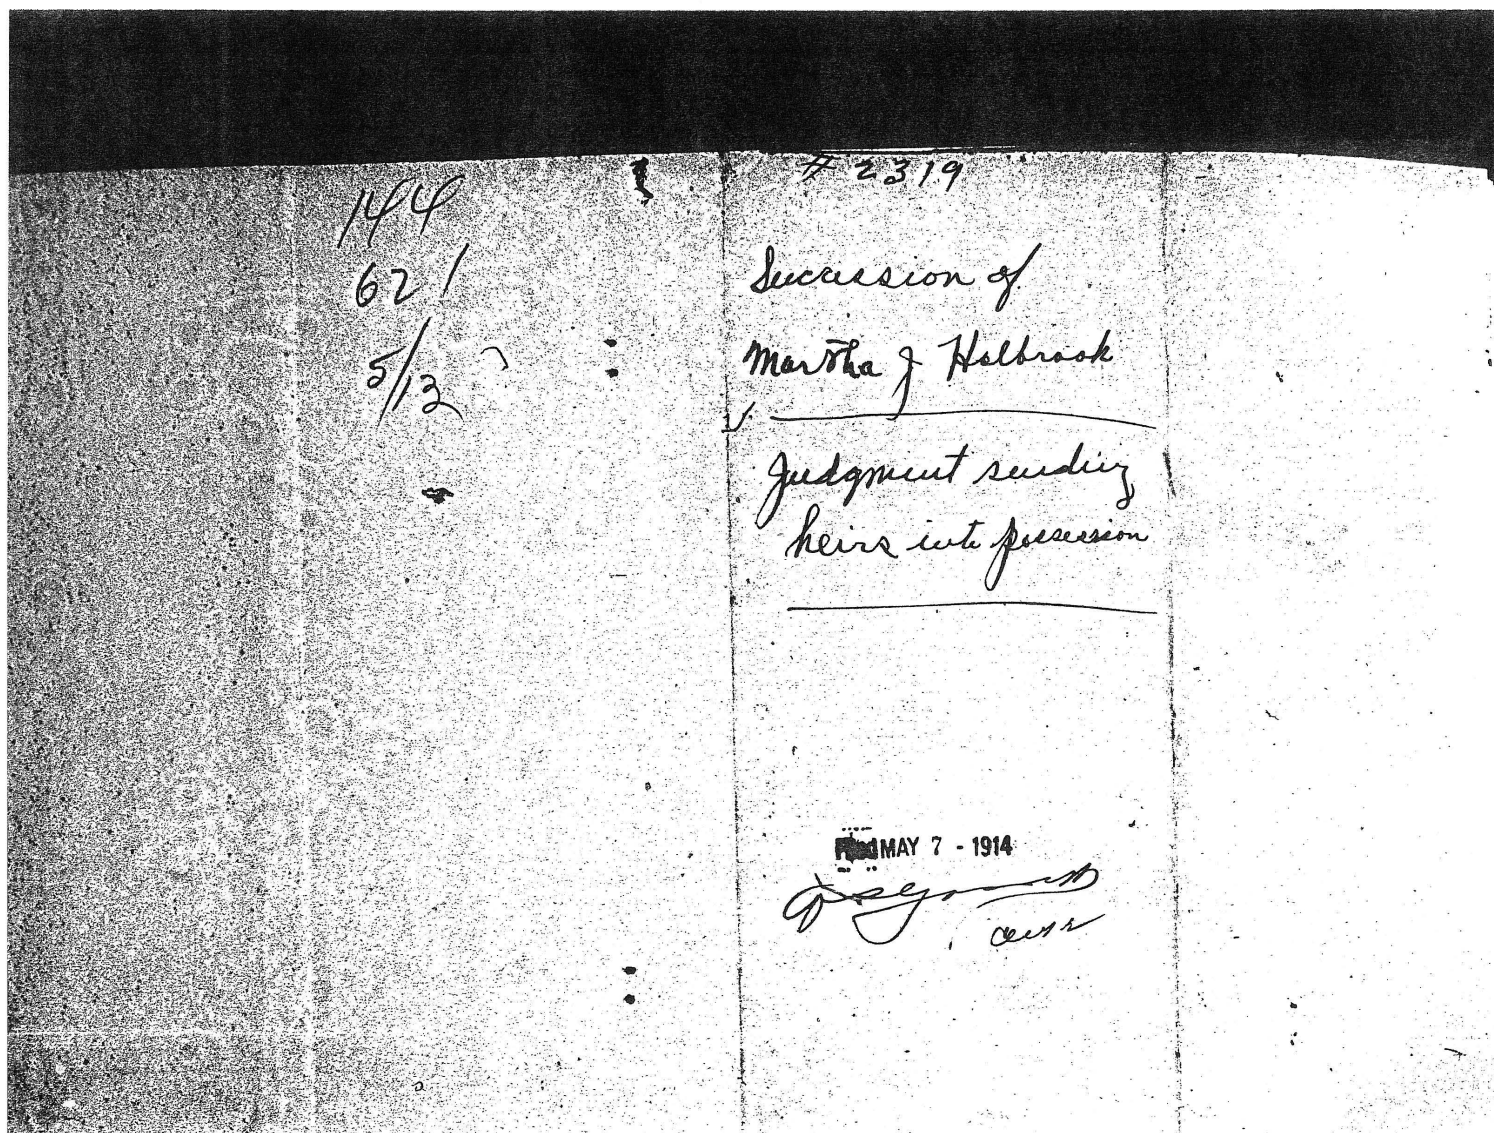 144
621
5/13
# 2319
Succession of
Martha J Holbrook
Judgment sending
heirs into possession
Filed MAY 7 - 1914